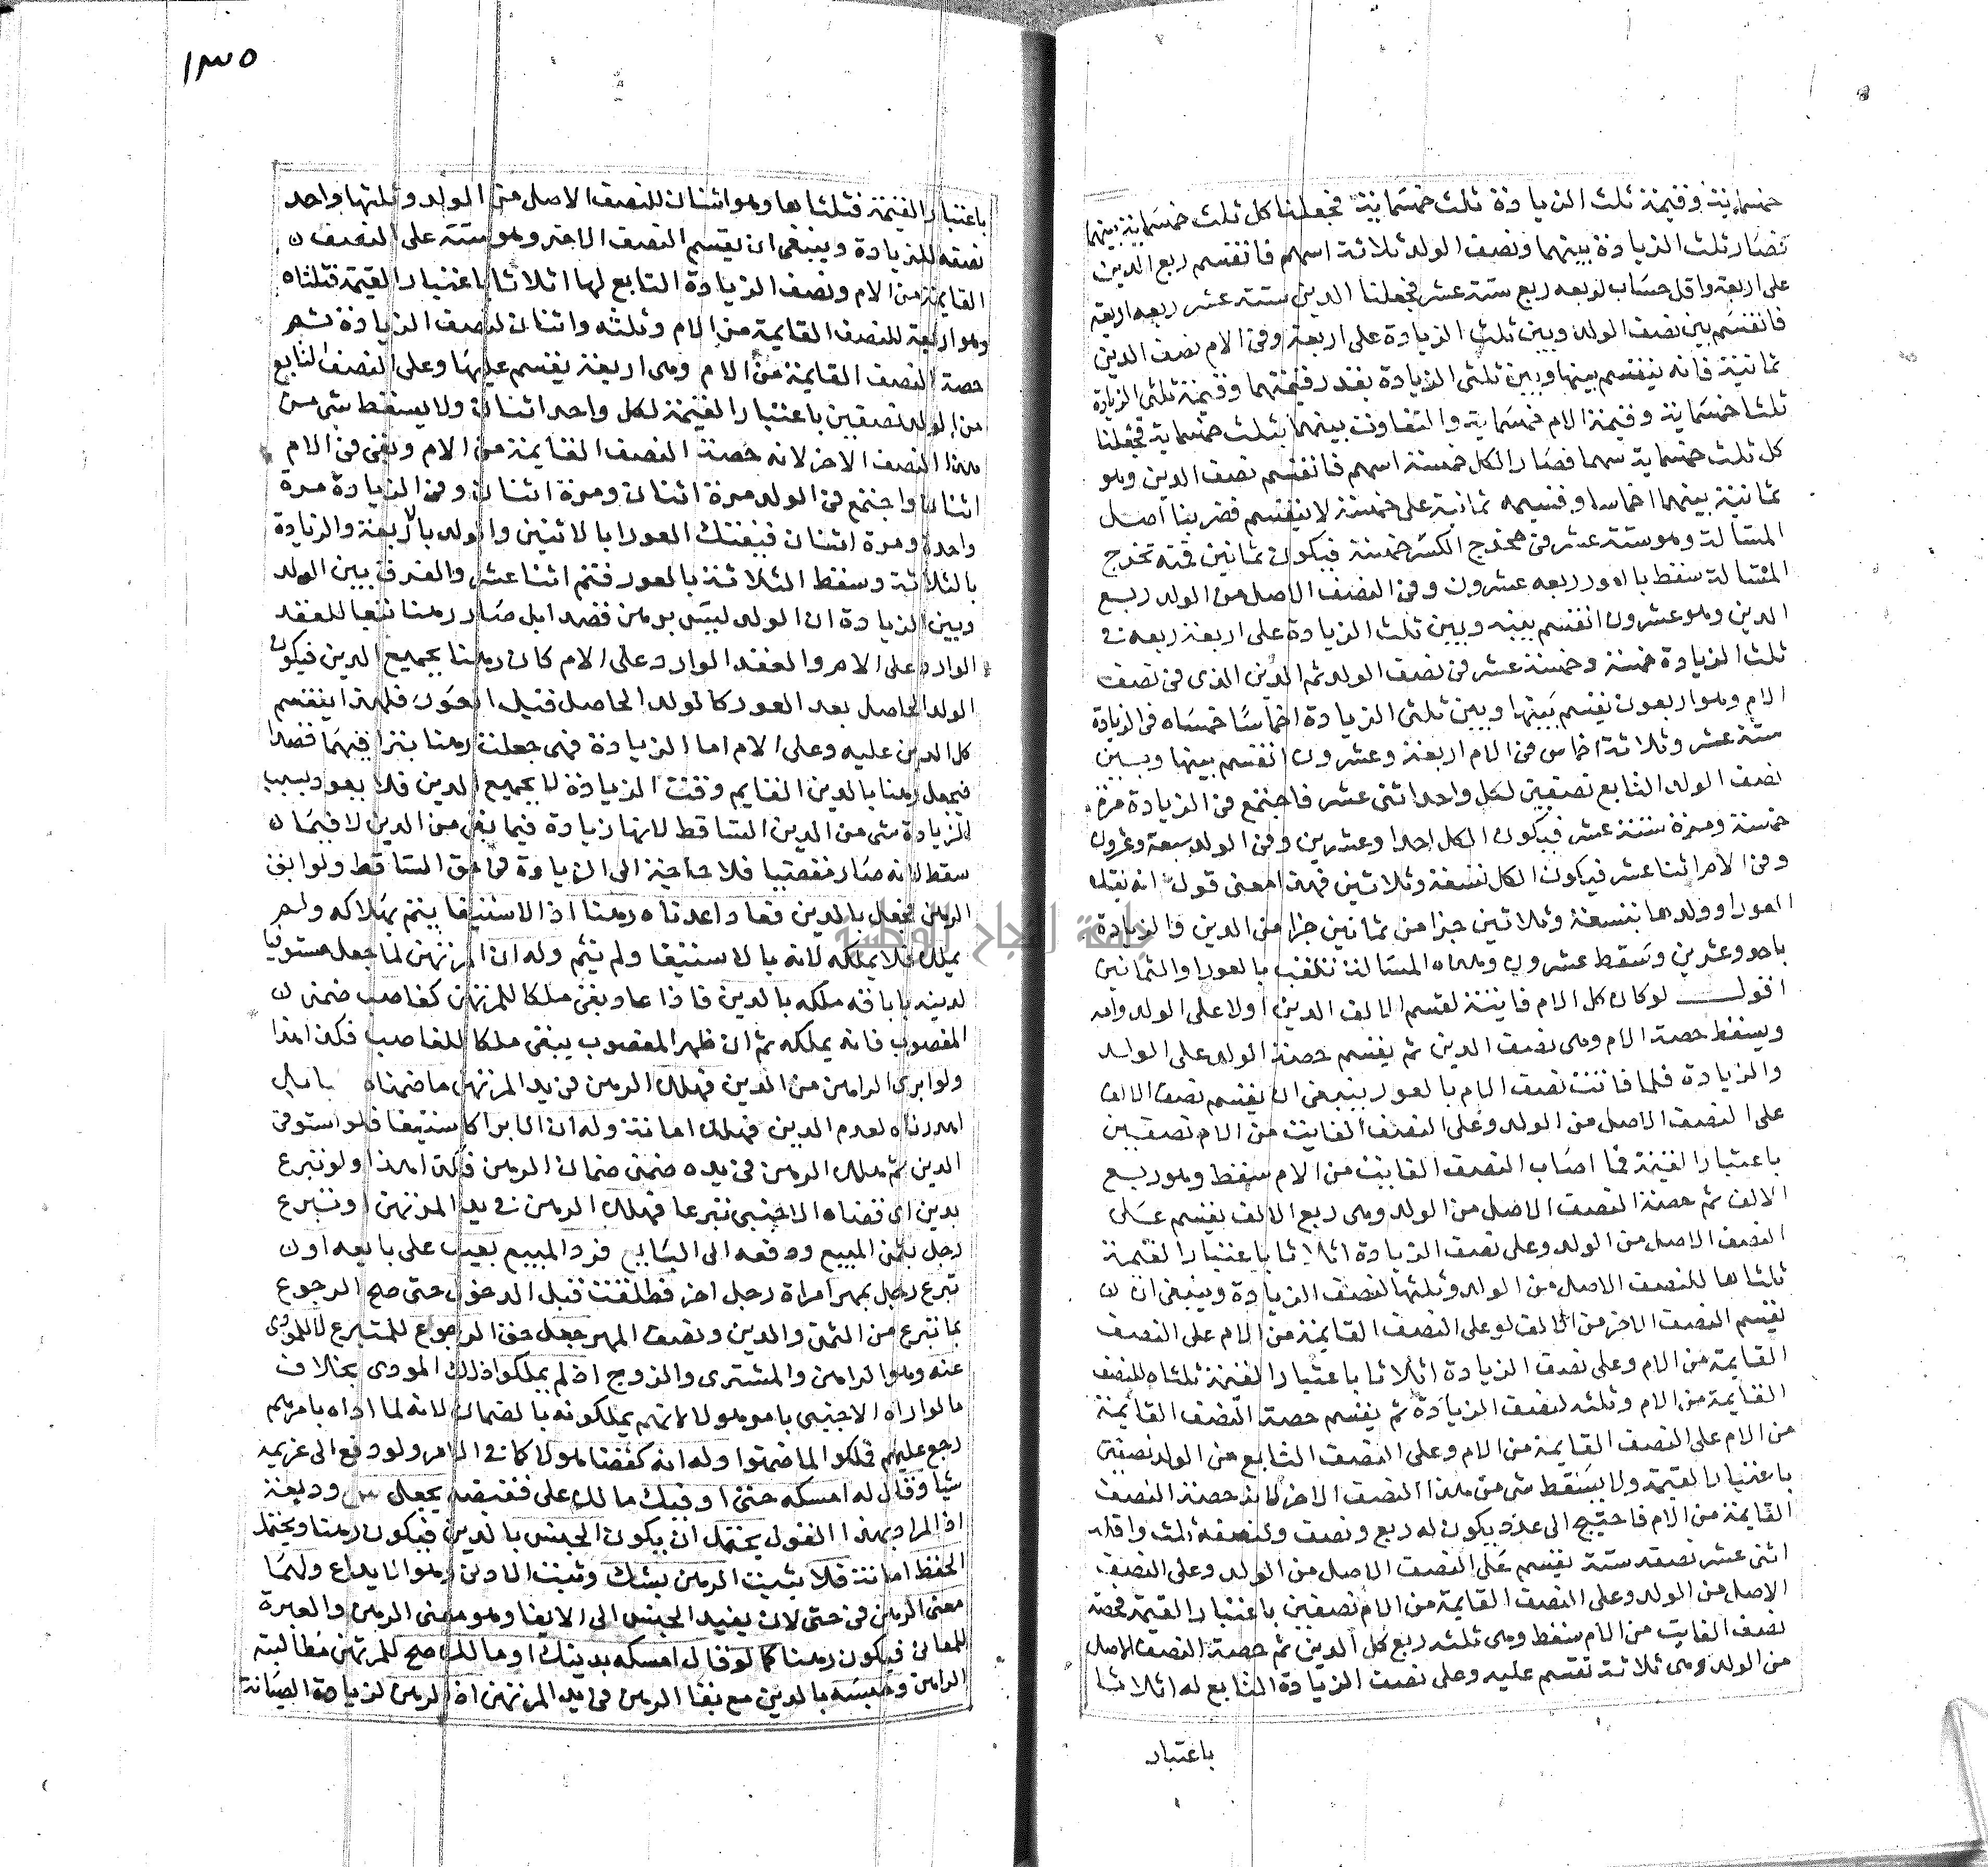 خمسماية وقيمة ثلث الزيادة ثلث خمسماية فجعلنا كل ثلث خمسماية بينهما
فصار ثلث الزيادة بينهما ونصف الولد ثلاثة اسهم فانقسم ربع الدين
على اربعة واقل حساب لربعه ربع ستة عشر فجعلنا الدين ستة عشر ربعه اربعة
فانقسم بين نصف الولد وبين ثلث الزيادة على اربعة وفي الام نصف الدين
ثمانية فانه ينقسم بينها وبين ثلثي الزيادة بقدر قيمتهما وقيمة ثلثي الزيادة
ثلثا خمسماية وقيمة الام خمسماية والتفاوت بينهما بثلث خمسماية فجعلنا
كل ثلث خمسماية سهما فصار الكل خمسة اسهم فانقسم نصف الدين وهو
ثمانية بينهما اخماسا وقسمه ثمانية على خمسة لا ينقسم فضربنا اصل
المسالة وهو ستة عشر في مخرج الكسر خمسة فيكون ثمانين فمنه تخرج
المسالة سقط بالعور ربعه عشرون وفي النصف الاصل من الولد ربع
الدين وهو عشرون انقسم بينه وبين ثلث الزيادة على اربعة ربعه في
ثلث الزيادة خمسة وخمسة عشر في نصف الولد ثم الدين الذي في نصف
الام وهو اربعون يقسم بينها وبين ثلثي الزيادة اخماسا خمساه في الزيادة
ستة عشر وثلاثة اخماس في الام اربعة وعشرون انقسم بينها وبين
نصف الولد التابع نصفين لكل واحد اثنى عشر فاجتمع في الزيادة مرة
خمسة ومرة ستة عشر فيكون الكل احدا وعشرين وفي الولد سبعة وعشرون
وفي الام اثنا عشر فيكون الكل تسعة وثلاثين فهذا معنى قوله انه يفتك
العورا وولدها بتسعة وثلاثين جزا من ثمانين جزا من الدين والزيادة
باحد وعشرين وسقط عشرون وهذه المسالة تلقب بالعورا والثمانين
اقول لو كان كل الام فايتة لقسم الالف الدين اولا على الولد وامه
ويسقط حصة الام وهي نصف الدين ثم يقسم حصة الولد على الولد
والزيادة فلما فاتت نصف الام بالعور ينبغي ان يقسم نصف الالف
على النصف الاصل من الولد وعلى النصف الفايت من الام نصفين
باعتبار القيمة فما اصاب النصف الفايت من الام سقط وهو ربع
الالف ثم حصة النصف الاصل من الولد وهي ربع الالف يقسم على
النصف الاصل من الولد وعلى نصف الزيادة اثلاثا باعتبار القيمة
ثلثاها للنصف الاصل من الولد وثلثها لنصف الزيادة وينبغي ان
يقسم النصف الاخر من الالف لو على النصف القايمة من الام على النصف
القايمة من الام وعلى نصف الزيادة اثلاثا باعتبار القيمة ثلثاه للنصف
القايمة من الام وثلثه لنصف الزيادة ثم يقسم حصة النصف القايمة
من الام على النصف القايمة من الام وعلى النصف التابع من الولد نصفين
باعتبار القيمة ولا يسقط شي من هذا النصف الاخر لانه حصة النصف
القايمة من الام فاحتيج الى عدد يكون له ربع ونصف ولنصفه ثلث واقله
اثنى عشر نصفه ستة يقسم على النصف الاصل من الولد وعلى النصف
الاصل من الولد وعلى النصف القايمة من الام نصفين باعتبار القيمة فحصة
نصف الفايت من الام سقط وهي ثلثه ربع كل الدين ثم حصة النصف الاصل
من الولد وهي ثلاثة تقسم عليه وعلى نصف الزيادة التابع له اثلاثا
باعتبار
١٣٥
باعتبار القيمة فثلثاها وهو اثنان للنصف الاصل من الولد وثلثها واحد
نصفه للزيادة وينبغي ان يقسم النصف الاخر وهو ستة على النصف
القايمة من الام ونصف الزيادة التابع لها اثلاثا باعتبار القيمة فثلثاه
وهو اربعة للنصف القايمة من الام وثلثه واثنان لنصف الزيادة ثم
حصة النصف القايمة من الام وهي اربعة يقسم عليها وعلى النصف التابع
من الولد نصفين باعتبار القيمة لكل واحد اثنان ولا يسقط شي من
هذا النصف الاخر لانه حصة النصف القايمة من الام وبقي في الام
اثنان واجتمع في الولد مرة اثنان ومرة اثنان وفي الزيادة مرة
واحد ومرة اثنان فيفتك العورا بالاثنين والولد بالاربعة والزيادة
بالثلاثة وسقط الثلاثة بالعور فتم اثنا عشر والفرق بين الولد
وبين الزيادة ان الولد ليس برهن قصدا بل صار رهنا تبعا للعقد
الوارد على الام والعقد الوارد على الام كان رهنا بجميع الدين فيكون
الولد الحاصل بعد العور كالولد الحاصل قبل العور فلهذا ينقسم
كل الدين عليه وعلى الام اما الزيادة فهي جعلت رهنا بتراضيهما قصدا
فيجعل رهنا بالدين القايم وقت الزيادة لا بجميع الدين فلا يعود بسبب
الزيادة شي من الدين الساقط لانها زيادة فيما بقي من الدين لا فيما
سقط لانه صار مقضيا فلا حاجة الى الزيادة في حق الساقط ولو ابق
الرهن فجعل بالدين فعاد اعدناه رهنا اذ الاستيفا يتم بهلاكه ولم
يهلك فلا يملكه لانه بالاستيفا ولم يتم وله ان المرتهن لما جعل مستوفيا
لدينه باباقه ملكه بالدين فاذا عاد بقي ملكا للمرتهن كغاصب ضمن
المغصوب فانه يملكه ثم ان ظهر المغصوب يبقى ملكا للغاصب فكذا هذا
ولو ابرى الراهن من الدين فهلك الرهن في يد المرتهن ما ضمناه بل
اهدرناه لعدم الدين فهلك امانة وله ان الابرا كاستيفا فلو استوفى
الدين ثم هلك الرهن في يده ضمن ضمان الرهن فكذا هذا ولو تبرع
بدين اي قضاه الاجنبي تبرعا فهلك الرهن في يد المرتهن او تبرع
رجل بثمن المبيع ودفعه الى البايع فرد المبيع بعيب على بايعه او
تبرع رجل بمهر امراة رجل اخر فطلقت قبل الدخول حتى صح الرجوع
بما تبرع من الثمن والدين ونصف المهر جعل حق الرجوع للمتبرع لا للمؤدى
عنه وهو الراهن والمشتري والزوج اذ لم يملكوا ذلك المودى بخلاف
ما لو اداه الاجنبي بامرهم ولانهم يملكونه بالضمان لانه لما اداه بامرهم
رجع عليهم فملكوا لما ضمنوا وله انه كقضا هو لا كان في الامر ولو دفع الى غريمه
شيا وقال له امسكه حتى اوفيك مالك على فقبضه يجعل وديعة
اذ المراد بهذا القول يحتمل ان يكون الحبس بالدين فيكون رهنا ويحتمل
الحفظ امانة فلا يثبت الرهن بشك وثبت الادنى وهو الايداع ولهما
معنى الرهن في حتى لان يفيد الحبس الى الايفا وهو معنى الرهن والعبرة
للمعاني فيكون رهنا كما لو قال امسكه بدينك او مالك صح للمرتهن مطالبة
الراهن وحبسه بالدين مع بقا الرهن في يد المرتهن اذ الرهن لزيادة الصيانة
جامعة النجاح الوطنية